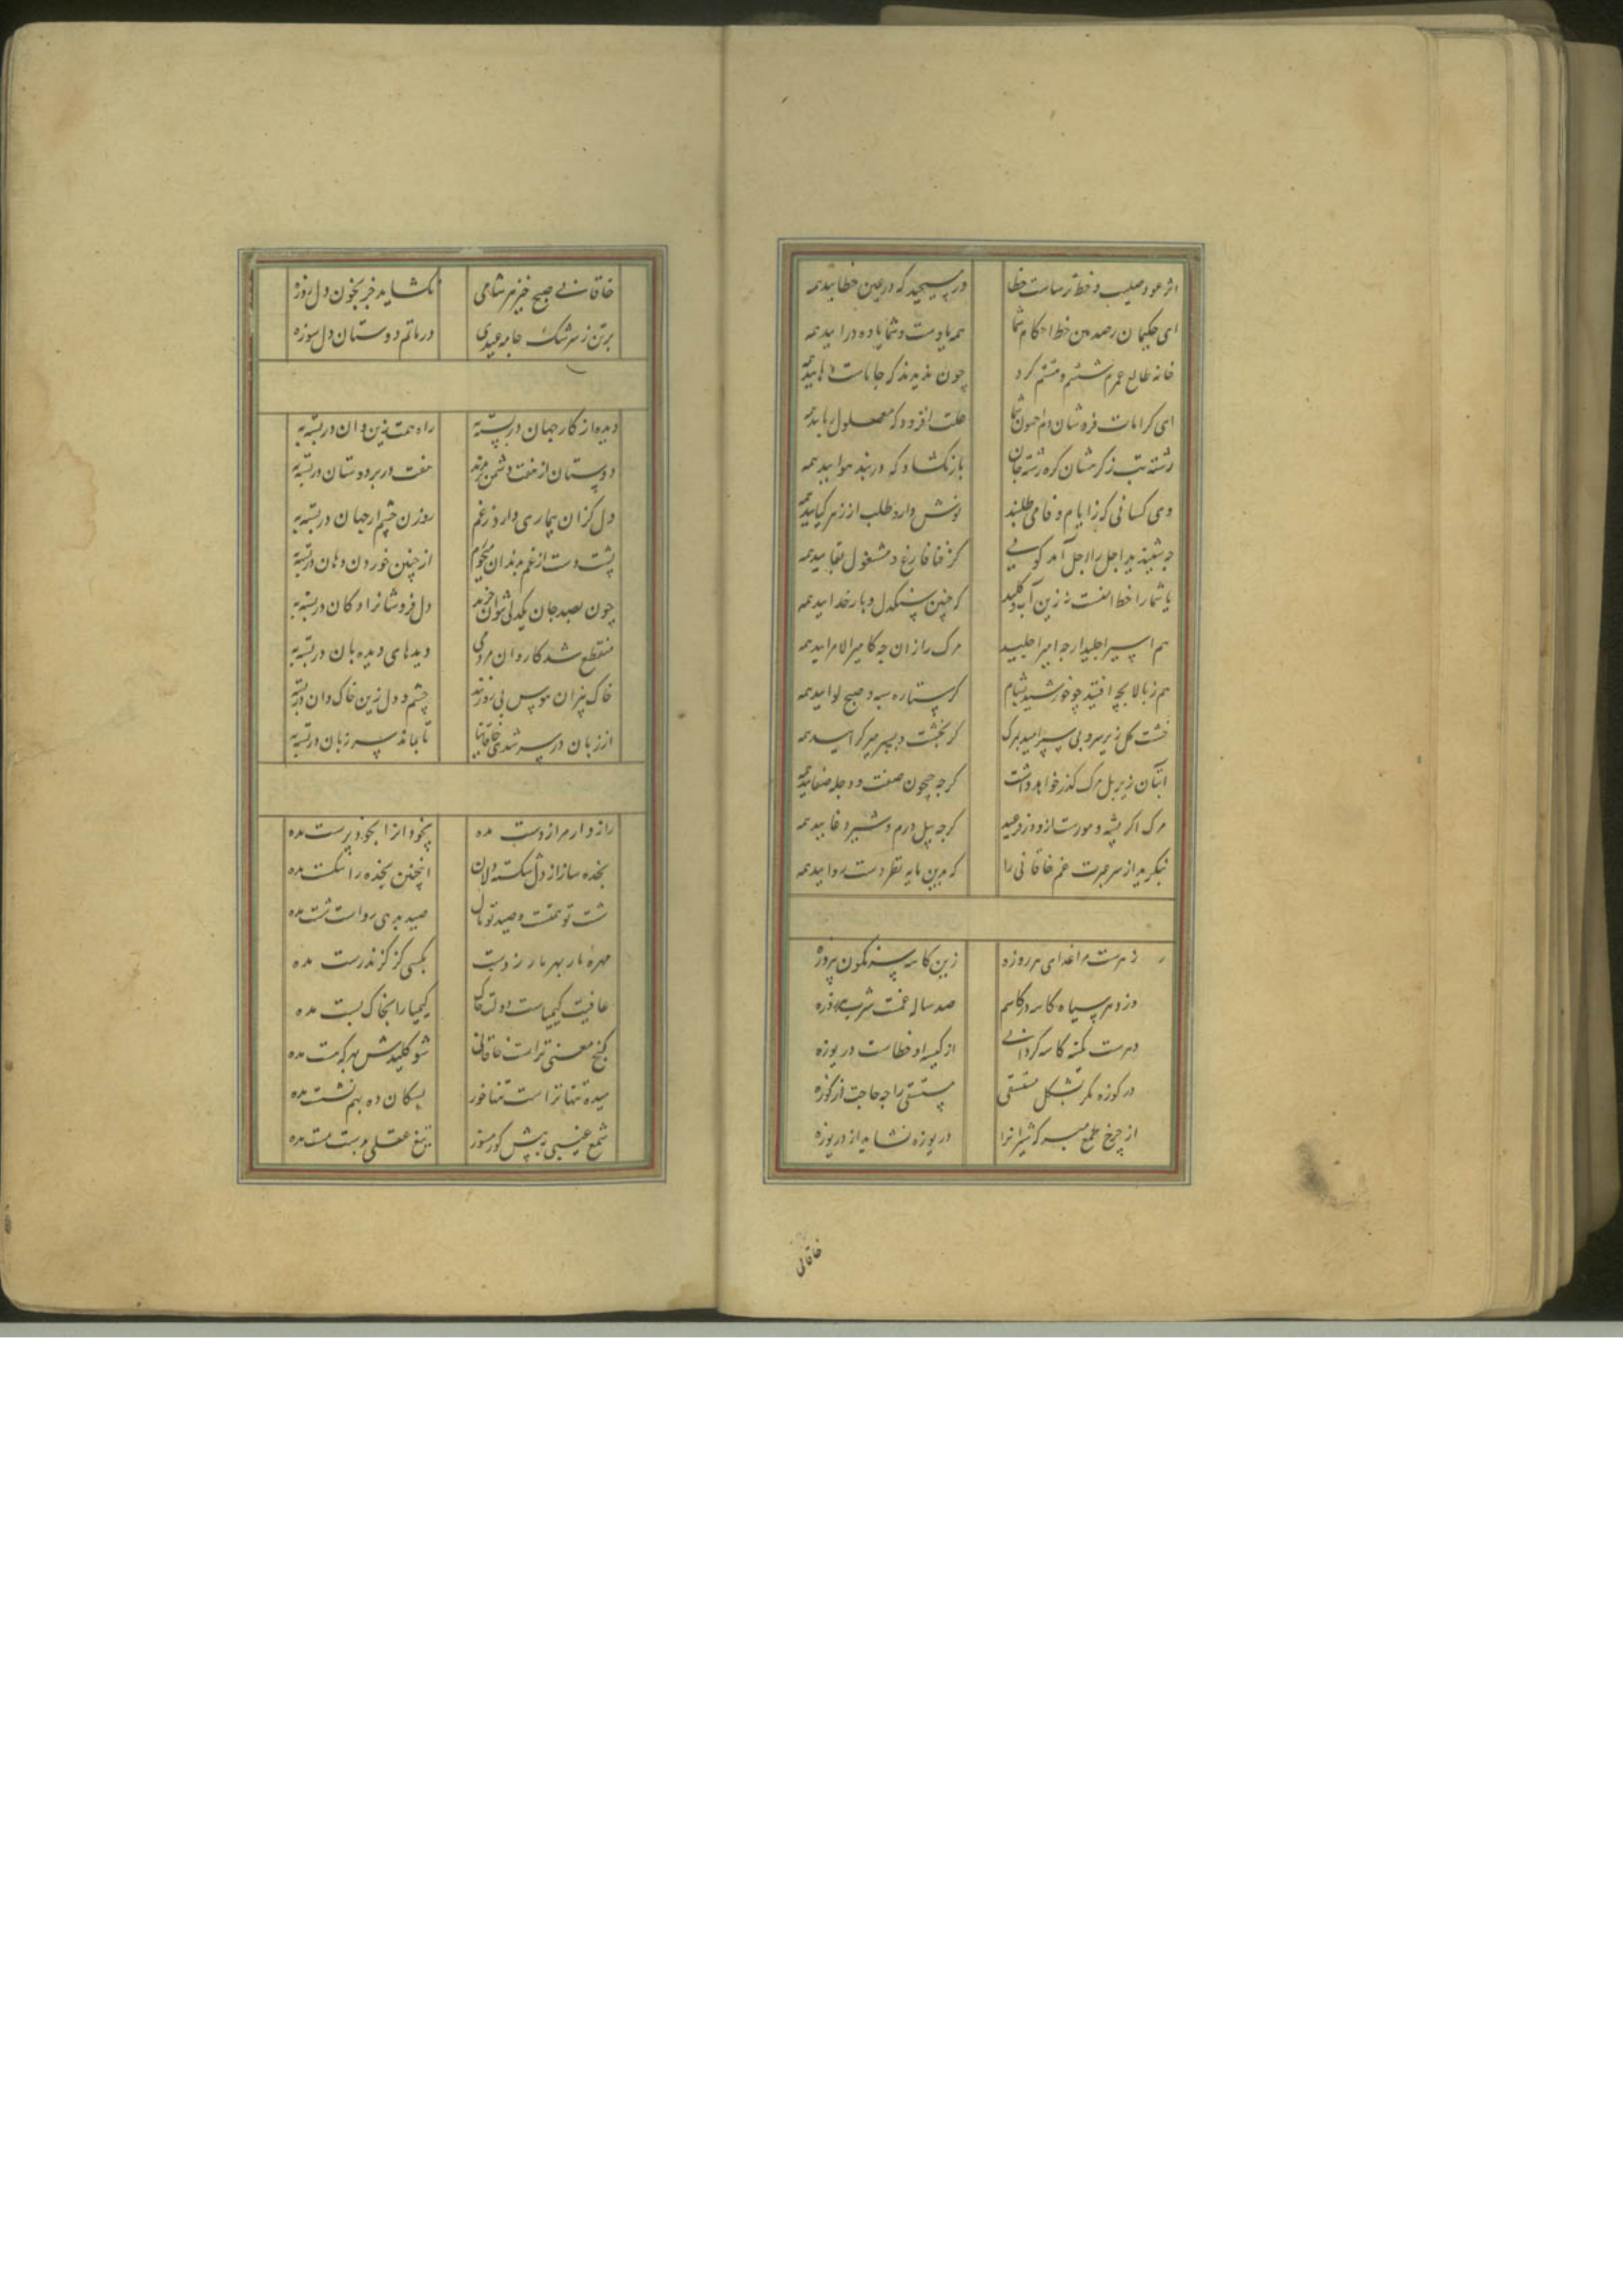 اثر عود صلیب و خط ترساست خطا
در مسیحید که در عین خطایید همه
ای حکیمان رصد بین خط احکام شما
همه یادست و شما یاده درایید همه
خانه طالع عمرم ششم و هشتم کرد
چون ندیدند که جا ماست
ای کرامات فروشان دم افسون شما
علت افزود که معلول ریایید همه
رشته تب ز کره‌شان کره رشته جان
باز نکشاد که در بند هوایید همه
وی کسانی که ز ایام وفا می‌طلبند
نوش دارو طلب از زهر کیایید همه
چه شنیدید اجل را اجل آمد کویی
کز فنا فارغ و مشغول بقایید همه
یا شما را خط امنست نه زین آب و کلید
که چنین سنکدل و بار خدایید همه
هم اسیر اجلید ارچه امیر اجلیید
مرک را زان چه کامیر الامرایید همه
هم ز بالا بچه افتید چو خورشید بشام
کر ستاره سپه و صبح لوایید همه
خشت کل زیر سر و پی سپر آیید بمرک
کر بخشت و بسپر میر کیایید همه
ابتان زیر پل مرک کذر خواهد داشت
کرچه جیحون صفت و دجله صفایید همه
مرک اکر پشه و مورست ازو در فزعید
کرچه پیل درم و شیر وغایید همه
بنکرید از سر حیرت غم خاقانی را
که بدین مایه نظر دست روایید همه
زهرست مرا غذای هر روزه
زین کاسه سرنکون پیروزه
وز دهر سیاه کاسه در کاسم
صد ساله غمست شرب یکروزه
دهرست کمینه کاسه کردانی
از کیسه او خطاست دریوزه
در کوزه نکر بشکل مستسقی
مستسقی را چه حاجت از کوزه
از چرخ طمع ببر که شیران را
دریوزه نشاید از در یوزه
خاقانی
خاقانی صبح خیز هر شامی
نکشاید جز بخون دل روزه
بر تن ز سرشک جامه عیدی
در ماتم دوستان دلسوزه
دیده از کار جهان در بسته به
راه همت زین و آن در بسته به
دوستان از هفت دشمن بدترند
هفت در بر دوستان در بسته به
دل کزان بیماری دارد ز غم
روزن چشم از جهان در بسته به
پشت دست از غم بدندان میخورم
از چنین خوردن دهان در بسته به
چون بصد جان یکدلی نتوان خرید
دل فروشان را دکان در بسته به
منقطع شد کاروان مردمی
دیدهای دیده‌بان در بسته به
خاک بیزان هوس بی روزند
چشم و دل زین خاکدان در بسته به
از زبان در سر شدی خاقانیا
تا بماند سر زبان در بسته به
راز دارم مرا ز دست مده
بیخود از را بخود پرست مده
بخده ساز از دل شکسته دلان
اینچنین بخده را شکست مده
شست تو همت و صید تو مال
صید بدهی رواست شست مده
مهره مار بهر مار زدست
بکسی کز کزند رست مده
عافیت کیمیاست دولت خاک
کیمیا را بخاک پست مده
کنج معنی تراست خاقانی
شو کلیدش بهر که هست مده
میده تنها تراست تنها خور
بسکان ده بهم نشست مده
شمع غیبی به پیش کور مسوز
تیغ عقلی بدست مست مده